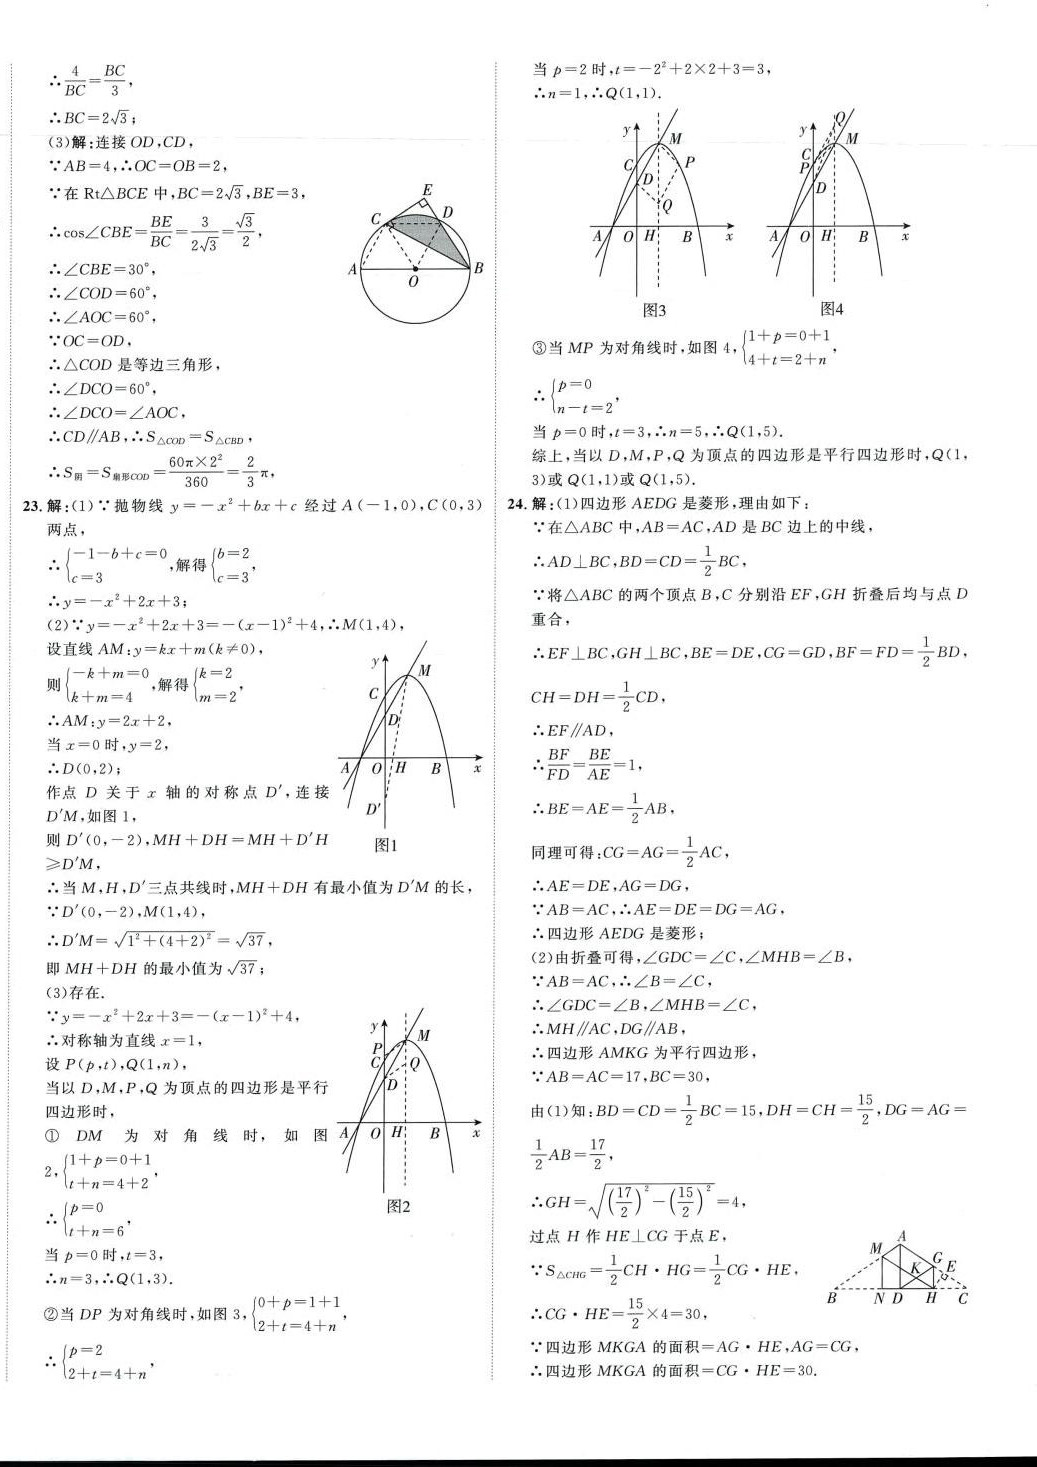 ∴4/BC=BC/3,
∴BC=2√3;
(3)解:连接 OD,CD,
∵AB=4,∴OC=OB=2,
∵在 Rt△BCE 中,BC=2√3,BE=3,
∴cos∠CBE=BE/BC=3/(2√3)=√3/2,
∴∠CBE=30°,
∴∠COD=60°,
∴∠AOC=60°,
∵OC=OD,
∴△COD 是等边三角形,
∴∠DCO=60°,
∴∠DCO=∠AOC,
∴CD∥AB,∴S△COD=S△CBD,
∴S阴=S扇形COD=(60π×2²)/360=2/3π,
E
C
D
A
O
B
23.解:(1)∵抛物线 y=-x²+bx+c 经过 A(-1,0),C(0,3)
两点,
∴{-1-b+c=0
c=3,解得{b=2
c=3,
∴y=-x²+2x+3;
(2)∵y=-x²+2x+3=-(x-1)²+4,∴M(1,4),
设直线 AM:y=kx+m(k≠0),
则{-k+m=0
k+m=4,解得{k=2
m=2,
∴AM:y=2x+2,
当 x=0 时,y=2,
∴D(0,2);
作点 D 关于 x 轴的对称点 D′,连接
D′M,如图 1,
则 D′(0,-2),MH+DH=MH+D′H
≥D′M,
y
M
C
D
A O H B x
D′
图1
∴当 M,H,D′三点共线时,MH+DH 有最小值为 D′M 的长,
∵D′(0,-2),M(1,4),
∴D′M=√(1²+(4+2)²)=√37,
即 MH+DH 的最小值为√37;
(3)存在.
∵y=-x²+2x+3=-(x-1)²+4,
∴对称轴为直线 x=1,
设 P(p,t),Q(1,n),
当以 D,M,P,Q 为顶点的四边形是平行
四边形时,
① DM 为对角线时,如图
2,{1+p=0+1
t+n=4+2,
∴{p=0
t+n=6,
当 p=0 时,t=3,
∴n=3,∴Q(1,3).
y
M
P
C Q
D
A O H B x
图2
②当 DP 为对角线时,如图 3,{0+p=1+1
2+t=4+n,
∴{p=2
2+t=4+n,
当 p=2 时,t=-2²+2×2+3=3,
∴n=1,∴Q(1,1).
y
M
C P
D
Q
A O H B x
图3
Q
y M
C
P
D
A O H B x
图4
③当 MP 为对角线时,如图 4,{1+p=0+1
4+t=2+n,
∴{p=0
n-t=2,
当 p=0 时,t=3,∴n=5,∴Q(1,5).
综上,当以 D,M,P,Q 为顶点的四边形是平行四边形时,Q(1,
3)或 Q(1,1)或 Q(1,5).
24.解:(1)四边形 AEDG 是菱形,理由如下:
∵在△ABC 中,AB=AC,AD 是 BC 边上的中线,
∴AD⊥BC,BD=CD=1/2BC,
∵将△ABC 的两个顶点 B,C 分别沿 EF,GH 折叠后均与点 D
重合,
∴EF⊥BC,GH⊥BC,BE=DE,CG=GD,BF=FD=1/2BD,
CH=DH=1/2CD,
∴EF∥AD,
∴BF/FD=BE/AE=1,
∴BE=AE=1/2AB,
同理可得:CG=AG=1/2AC,
∴AE=DE,AG=DG,
∵AB=AC,∴AE=DE=DG=AG,
∴四边形 AEDG 是菱形;
(2)由折叠可得,∠GDC=∠C,∠MHB=∠B,
∵AB=AC,∴∠B=∠C,
∴∠GDC=∠B,∠MHB=∠C,
∴MH∥AC,DG∥AB,
∴四边形 AMKG 为平行四边形,
∵AB=AC=17,BC=30,
由(1)知:BD=CD=1/2BC=15,DH=CH=15/2,DG=AG=
1/2AB=17/2,
∴GH=√((17/2)²-(15/2)²)=4,
过点 H 作 HE⊥CG 于点 E,
∵S△CHG=1/2CH·HG=1/2CG·HE,
∴CG·HE=15/2×4=30,
A
M
G
K E
B N D H C
∵四边形 MKGA 的面积=AG·HE,AG=CG,
∴四边形 MKGA 的面积=CG·HE=30.